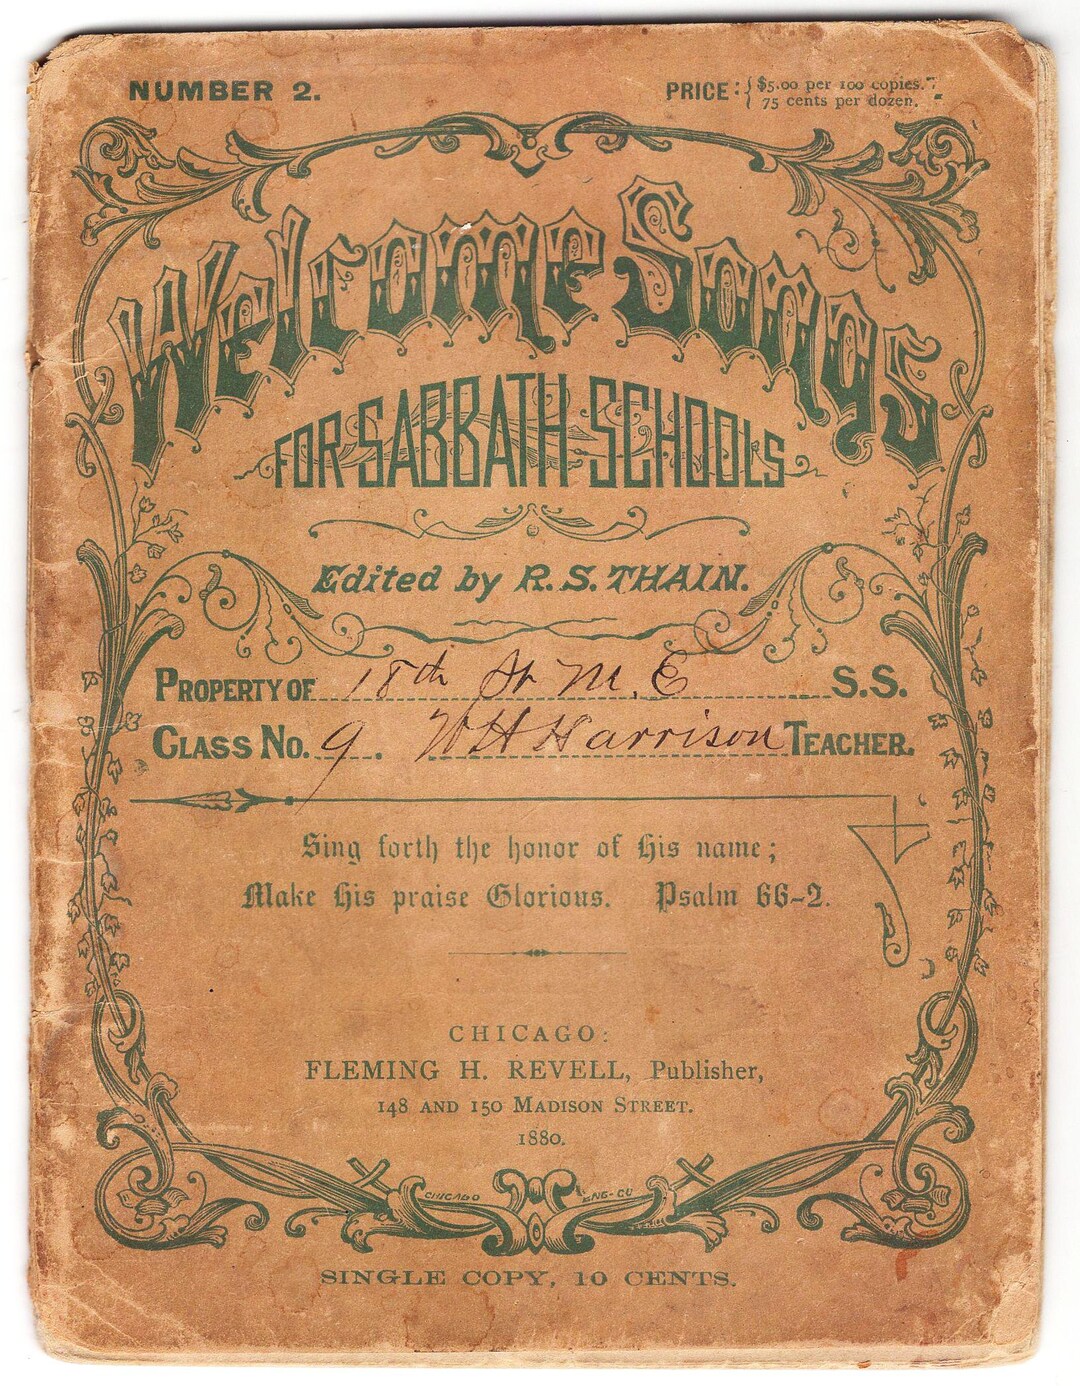 NUMBER 2.
PRICE: { $5.00 per 100 copies.
75 cents per dozen.
Welcome Songs
FOR SABBATH SCHOOLS
Edited by R. S. THAIN.
PROPERTY OF 18th St M. E S.S.
CLASS No. 9. W H Harrison TEACHER.
Sing forth the honor of His name;
Make His praise Glorious. Psalm 66-2.
CHICAGO:
FLEMING H. REVELL, Publisher,
148 AND 150 MADISON STREET.
1880.
CHICAGO ENG-CO
SINGLE COPY, 10 CENTS.